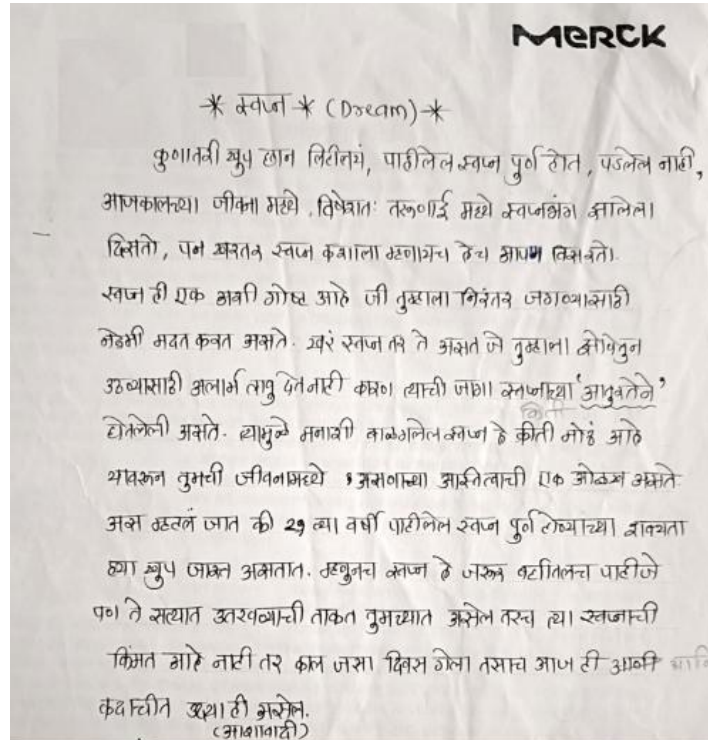 MERCK
* स्वप्न * (Dream) *
कुणातरी खुप छान लिहीलयं, पाहीलेल स्वप्न पुर्ण होत, पडलेल नाही,
आजकालच्या जीवना मध्ये, विषेशतः तरूणाई मध्ये स्वप्नभंग झालेला
दिसतो, पन खरतर स्वप्न कशाला म्हणायच हेच आपण विसरतो.
स्वप्न ही एक अशी गोष्ट आहे जी तुम्हाला निरंतर जगण्यासाठी
नेहमी मदत करत असते. खरं स्वप्न तर ते असत जे तुम्हाला झोपेतुन
उठण्यासाठी अलार्म लावु देत नाही कारण त्याची जागा स्वप्नाच्या 'आतुरतेने'
घेतलेली असते. त्यामुळे मनाशी बाळगलेल स्वप्न हे कीती मोठं आहे
यावरून तुमची जीवनामध्ये असणाऱ्या अस्तित्वाची एक ओळख असते.
अस म्हटलं जात की 29 व्या वर्षी पाहीलेल स्वप्न पुर्ण होण्याच्या शक्यता
ह्या खुप जास्त असतात. म्हणुनच स्वप्न हे जरूर बघीतलच पाहीजे
पण ते सत्यात उतरवण्याची ताकत तुमच्यात असेल तरच त्या स्वप्नाची
किंमत आहे नाही तर काल जसा दिवस गेला तसाच आज ही आणी
कदाचीत उद्या ही असेल.
(आशावादी)